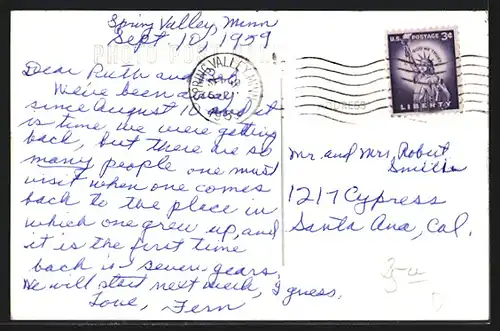 Spring Valley, Minn
Sept. 10, 1959
Dear Ruth and Bob,
We've been
since August 10 and it
is time we were getting
back, but there are so
many people one must
visit when one comes
back to the place in
which one grew up, and
it is the first time
back in seven years.
We will start next week, I guess.
Love, Fern
SPRING VALLEY, MINN.
U.S. POSTAGE 3¢
IN GOD WE TRUST
LIBERTY
ADDRESS
Mr. and Mrs. Robert
Smith
1217 Cypress
Santa Ana, Cal.